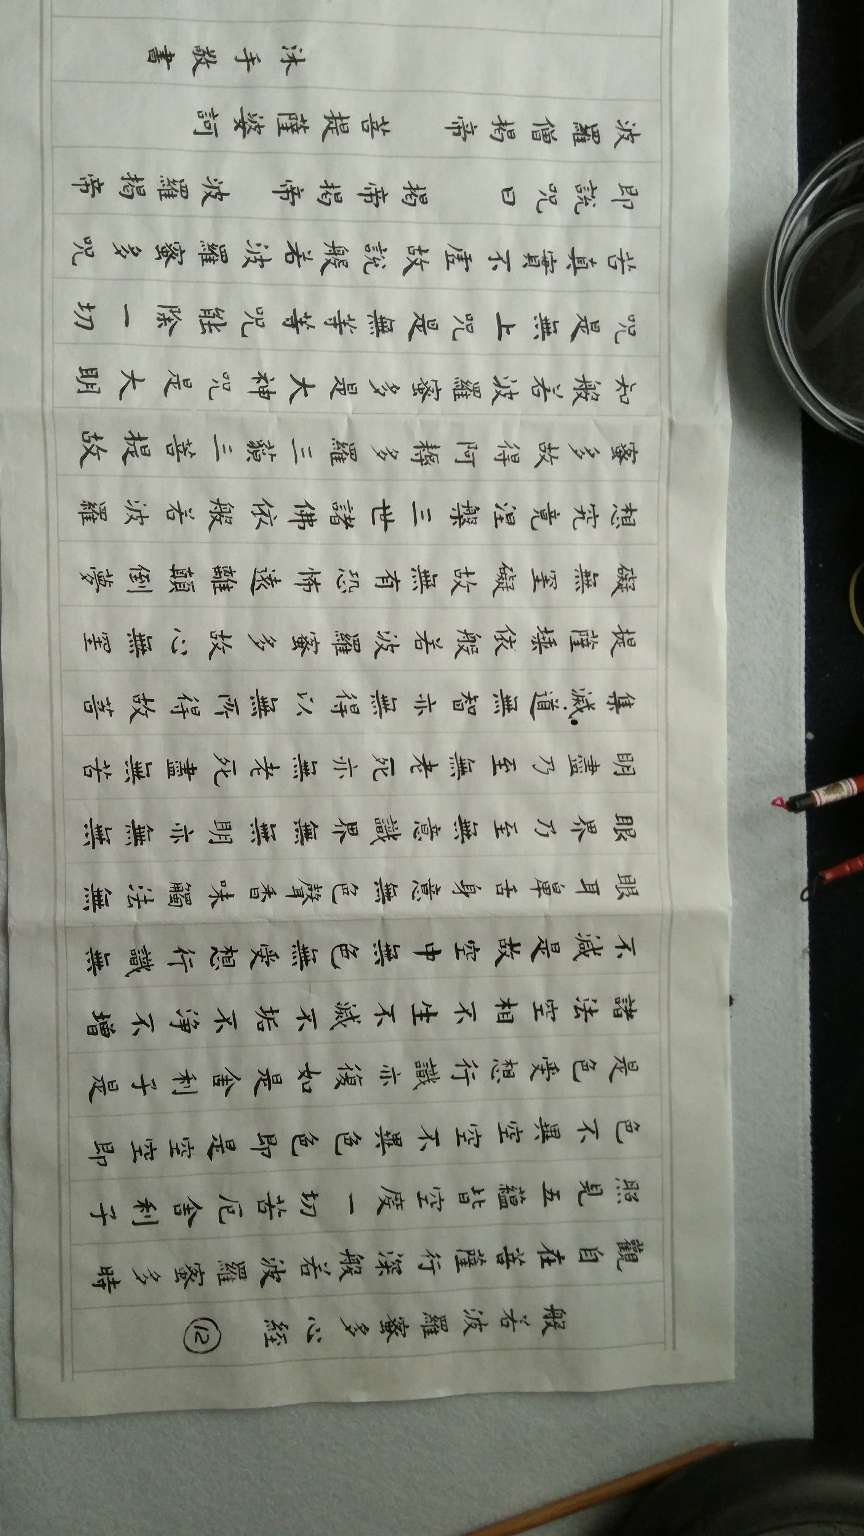 般若波羅蜜多心経 12
觀自在菩薩行深般若波羅蜜多時
照見五蘊皆空度一切苦厄舍利子
色不異空空不異色色即是空空即
是色受想行識亦復如是舍利子是
諸法空相不生不滅不垢不淨不增
不減是故空中無色無受想行識無
眼耳鼻舌身意無色聲香味觸法無
眼界乃至無意識界無無明亦無無
明盡乃至無老死亦無老死盡無苦
集滅道無智亦無得以無所得故菩
提薩埵依般若波羅蜜多故心無罣
礙無罣礙故無有恐怖遠離顛倒夢
想究竟涅槃三世諸佛依般若波羅
蜜多故得阿耨多羅三藐三菩提故
知般若波羅蜜多是大神咒是大明
咒是無上咒是無等等咒能除一切
苦真實不虛故說般若波羅蜜多咒
即說咒曰 揭帝揭帝 波羅揭帝
波羅僧揭帝 菩提薩婆訶
沐手敬書